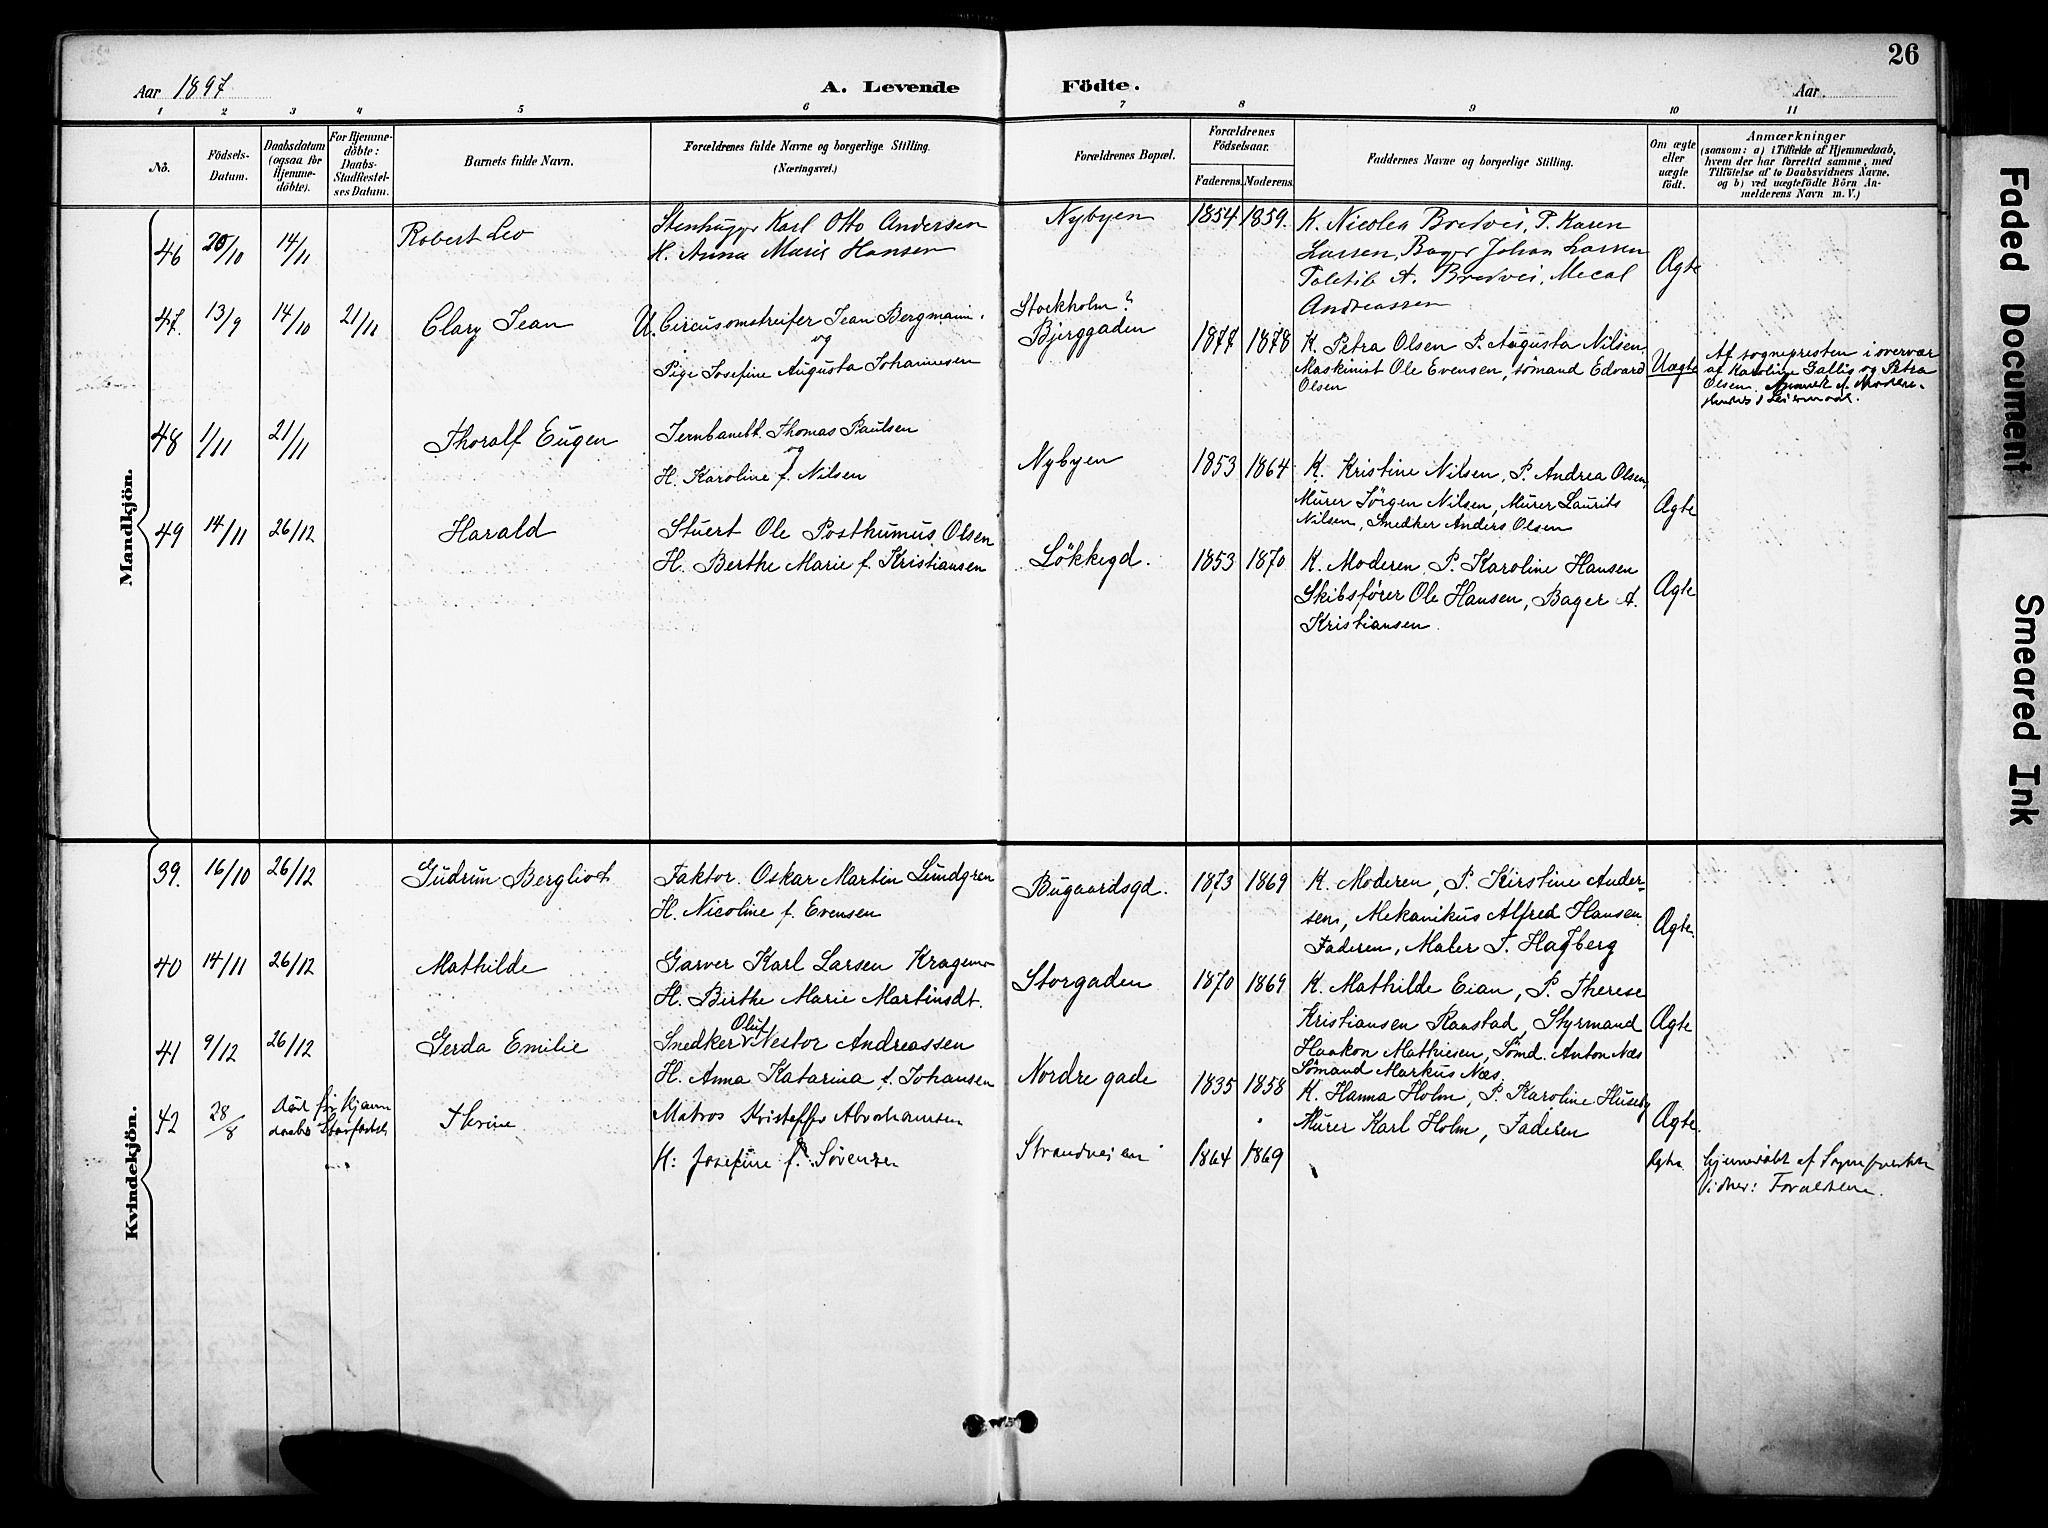 26
Aar 1897
A. Levende Födte.
Aar
1 2 3 4 5 6 7 8 9 10 11
No.
Födsels-Datum.
Daabsdatum (ogsaa for Hjemmedöbte).
For Hjemmedöbte: Daabs-Stadfæstelses Datum.
Barnets fulde Navn.
Forældrenes fulde Navne og borgerlige Stilling. (Næringsvei.)
Forældrenes Bopæl.
Forældrenes Födselsaar.
Faderens. Moderens.
Faddernes Navne og borgerlige Stilling.
Om ægte eller uægte födt.
Anmærkninger
(saasom: a) i Tilfælde af Hjemmedaab, hvem der har forrettet samme, med Tilföielse af to Daabsvidners Navne. og b) ved uægtefödte Börn Anmelderens Navn m. V.)
Mandkjön.
46 20/10 14/11 Robert Leo
Stenhugger Karl Otto Andersen
H. Anna Marie Hansen
Nybyen 1854 1859.
K. Nicolea Bredvei, P. Karen
Larsen, Bager Johan Larsen
A. Bredvei,
Andreassen
Ægte
47. 13/9 14/10 21/11 Clary Jean
U. Circusomstreifer Jean Bergmann.
og
Pige Josefine Augusta Johannesen
Stockholm?
Bjerggaden 1877 1878
K. Petra Olsen P. Augusta Nilsen,
Maskinist Ole Evensen, sømand Edvard
Olsen
Uægte
Af sognepresten i overvær
af Karoline Gallis og Petra
Olsen.
48 1/11 21/11 Thoralf Eugen
Jernbanebt. Thomas Paulsen
og
H. Karoline f. Nilsen
Nybyen 1853 1864
K. Kristine Nilsen, P. Andrea Olsen,
Murer Jörgen Nilsen, Murer Laurits
Nilsen, Snedker Anders Olsen
Ægte
49 14/11 26/12 Harald
Stuert Ole Posthumus Olsen
H. Berthe Marie f. Kristiansen
Løkkegd. 1853 1870
K. Moderen, P. Karoline Hansen
Skibsfører Ole Hansen, Bager A.
Kristiansen.
Ægte
Kvindekjön.
39. 16/10 26/12 Gudrun Bergliot
Faktor Oskar Martin Lundgren
H. Nicoline f. Evensen
Bugaardsgd. 1873 1869
K. Moderen, P. Kirstine Ander-
sen, Mekanikus Alfred Hansen
Faderen, Maler T. Hagberg
Ægte.
40 14/11 26/12 Mathilde
Garver Karl Larsen
H. Birthe Marie Martinsdt.
Storgaden 1870 1869
K. Mathilde Eian, P. Therese
Kristiansen Raastad, Styrmand
Haakon Mathiesen, Sømd. Anton Næs
Sømand Markus Næs.
Ægte
41 9/12 26/12 Gerda Emilie
Oluf
Snedker Nestor Andreassen
H. Anna Katarina f. Johansen
Nordre gade 1835 1858
K. Hanna Holm, P. Karoline Huseby
Murer Karl Holm, Faderen
Ægte.
42 28/8
Død før hjem
Matros Kristoffer Abrahamsen
H: Josefine f. Sørensen
Strandveien 1864 1869
Ægte
hjemmedøbt af Sognepresten
Vidner: Forældrene.
Faded Document
Smeared Ink